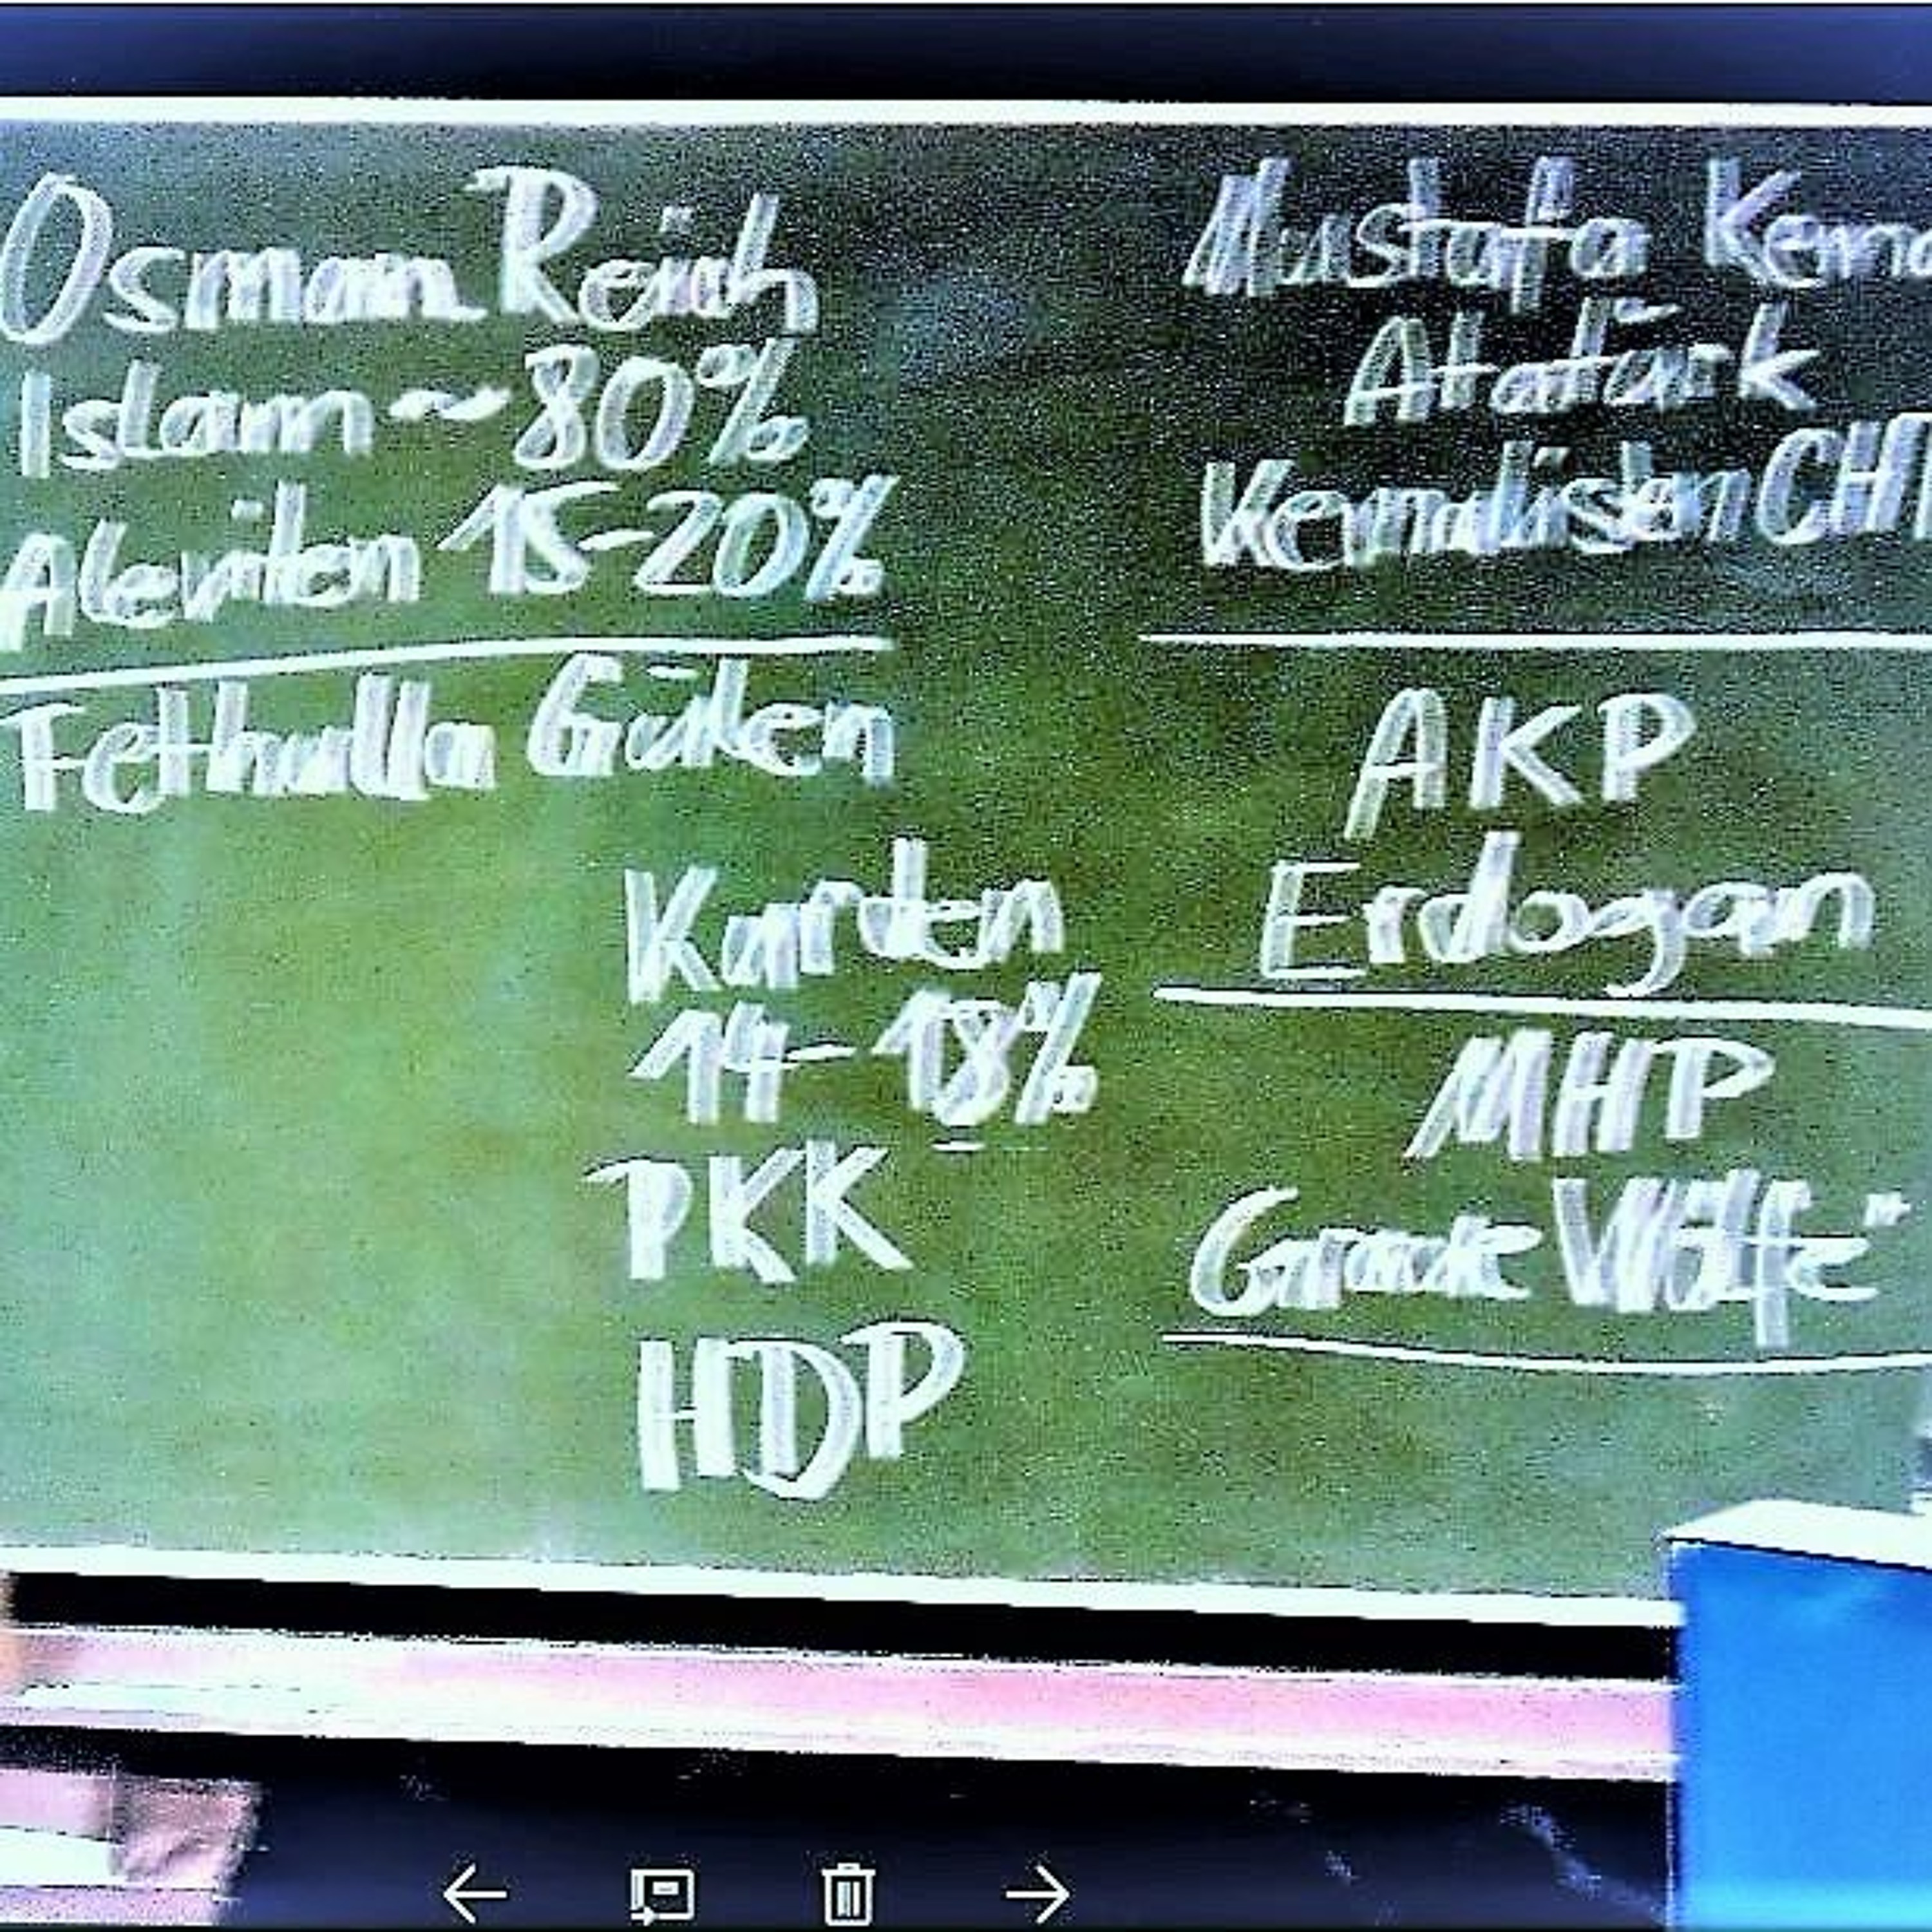 Osman Reich
Islam ~ 80%
Aleviten 15-20%
Fethulla Gülen
Kurden
14-18%
PKK
HDP
Mustafa Kema
Atatürk
Kemalisten CHP
AKP
Erdogan
MHP
Graue Wölfe"